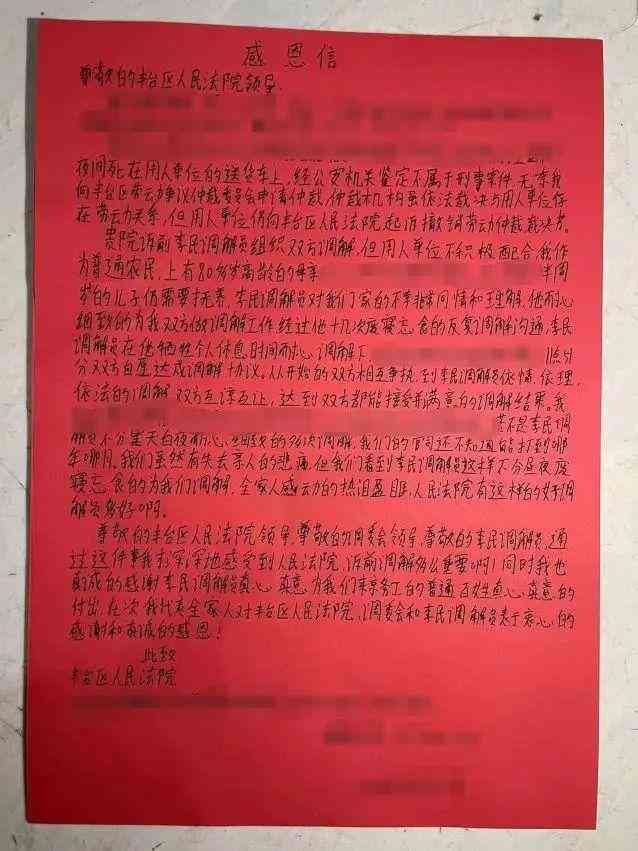 感恩信
尊敬的丰台区人民法院领导
夜间死在用人单位的送货车上,经公安机关鉴定不属于刑事案件,无奈我
向丰台区劳动争议仲裁委员会申请仲裁,仲裁机构虽依法裁决与用人单位存
在劳动关系,但用人单位仍向丰台区人民法院起诉撤销劳动仲裁裁决书。
贵院诉前李民调解员组织双方调解,但用人单位不积极配合,我作
为普通农民,上有80多岁高龄的母亲 半周
岁的儿子仍需要抚养,李民调解员对我们家的不幸非常同情和理解,他耐心
细致的为我双方做调解工作,经过他十几次废寝忘食的反复调解沟通,李民
调解员在他牺牲个人休息时间耐心调解下 11点51
分双方自愿达成调解协议。从开始的双方相互争执,到李民调解员依情、依理、
依法的调解,双方互谅互让,达到双方都能接受和满意的调解结果。我
若不是李民调
解员不分星天白夜耐心 的多次调解,我们的官司还不知道能打到哪
年哪月。我们虽然有失去亲人的悲痛,但我们看到李民调解员这样不分昼夜废
寝忘食的为我们调解,全家人感动的热泪盈眶,人民法院有这样的好调
解员真好啊。
尊敬的丰台区人民法院领导,尊敬的调委会领导,尊敬的李民调解员,通
过这件事我深深地感受到人民法院诉前调解多么重要啊!同时我也
真诚的感谢李民调解员真心真意为我们来京务工的普通百姓真心真意的
付出,在次我代表全家人对丰台区人民法院、调委会和李民调解员表示衷心的
感谢和真诚的感恩!
此致
丰台区人民法院